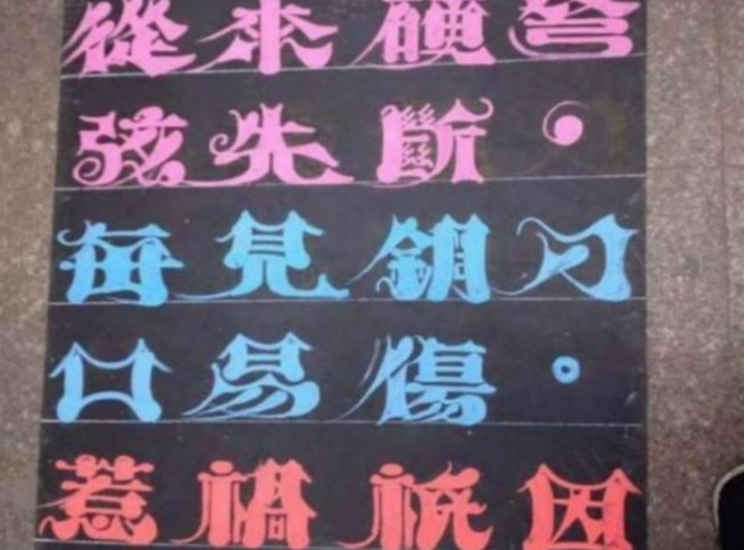 從來硬弩
弦先斷，
每見鋼刀
口易傷。
惹禍祇因